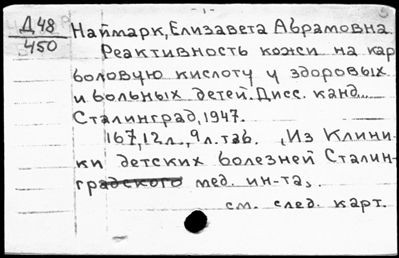 - 1 -
Д48
450
Наймарк, Елизавета Абрамовна
Реактивность кожи на кар
боловую кислоту у здоровых
и больных детей. Дисс. канд...
Сталинград, 1947.
167,12л., 9 л. таб. „Из Клини-
ки детских болезней Сталин-
градского мед. ин-та„.
см. след. карт.